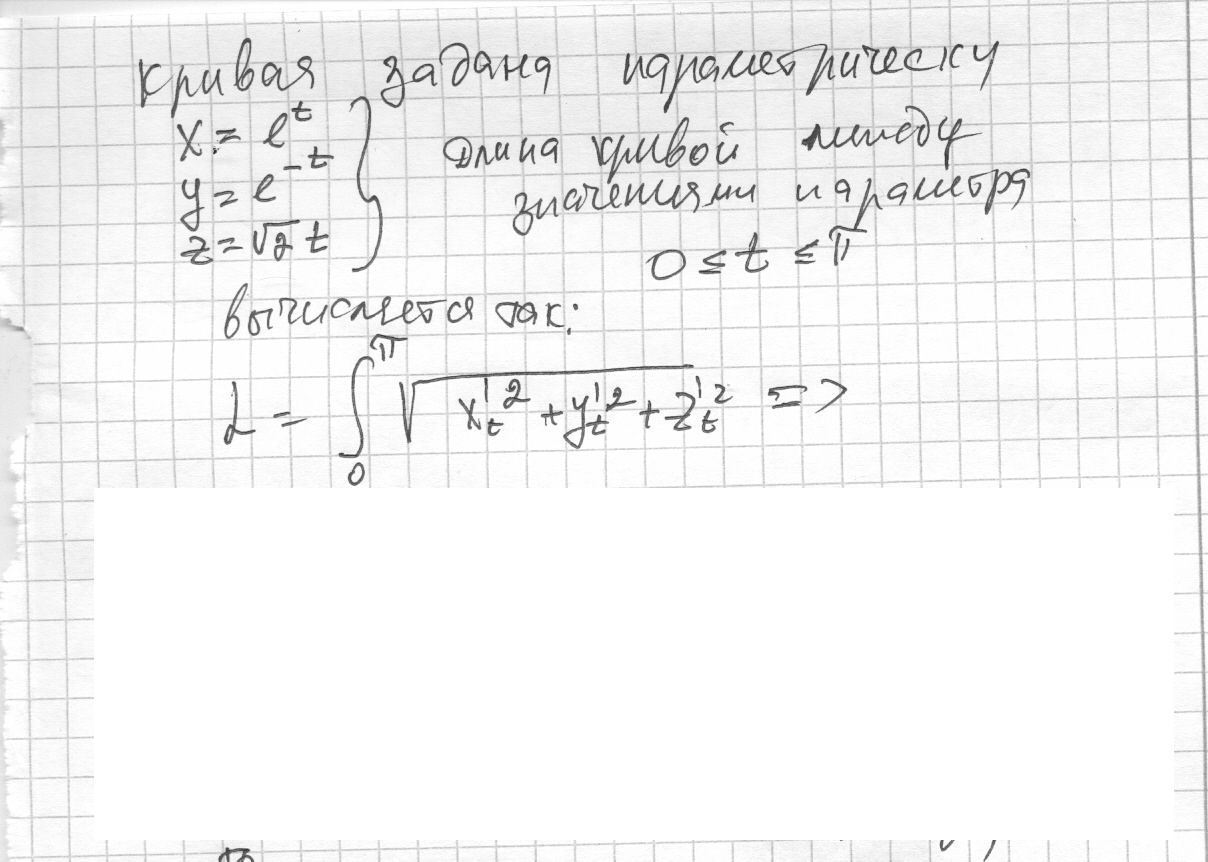 Кривая задана параметрическу
x = e^t
y = e^{-t}
z = √2 t
Длина кривой между
значениями параметра
0 ≤ t ≤ π
вычисляется так:
L = ∫_0^π √(x'_t^2 + y'_t^2 + z'_t^2) =>